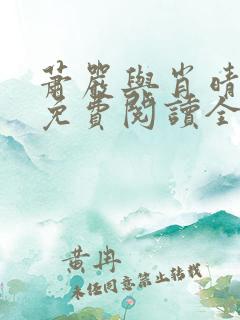 蕭嚴與肖晴
免費閱讀全
黄冉
未经同意禁止转载